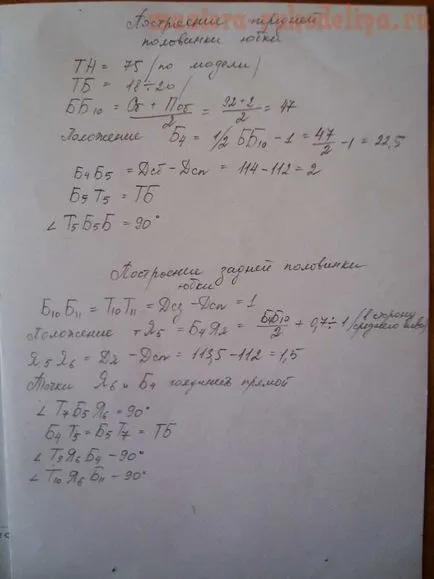 Построение передней
половинки юбки
ТН = 75 /по модели/
ТБ = 18÷20/
ББ10 = (Сб + Поб)/2 = (92+2)/2 = 47
Положение Б4 = 1/2 ББ10 - 1 = 47/2 - 1 = 22,5
Б4Б5 = Дсб - Дсп = 114 - 112 = 2
Б5Т5 = ТБ
∠ Т5Б5Б = 90°
Построение задней половинки
юбки
Б10Б11 = Т10Т11 = Дсз - Дсп = 1
Положение т Я5 = Б4Я2 = Б4Б10/2 + 0,7÷1 /в сторону
среднего шва/
Я5Я6 = Дя - Дсп = 113,5 - 112 = 1,5
Точки Я6 и Б4 соединяем прямой
∠ Т7Б5Я6 = 90°
Б4Т5 = Б5Т7 = ТБ
∠ Т9Я6Б4 - 90°
∠ Т10Я6Б11 - 90°